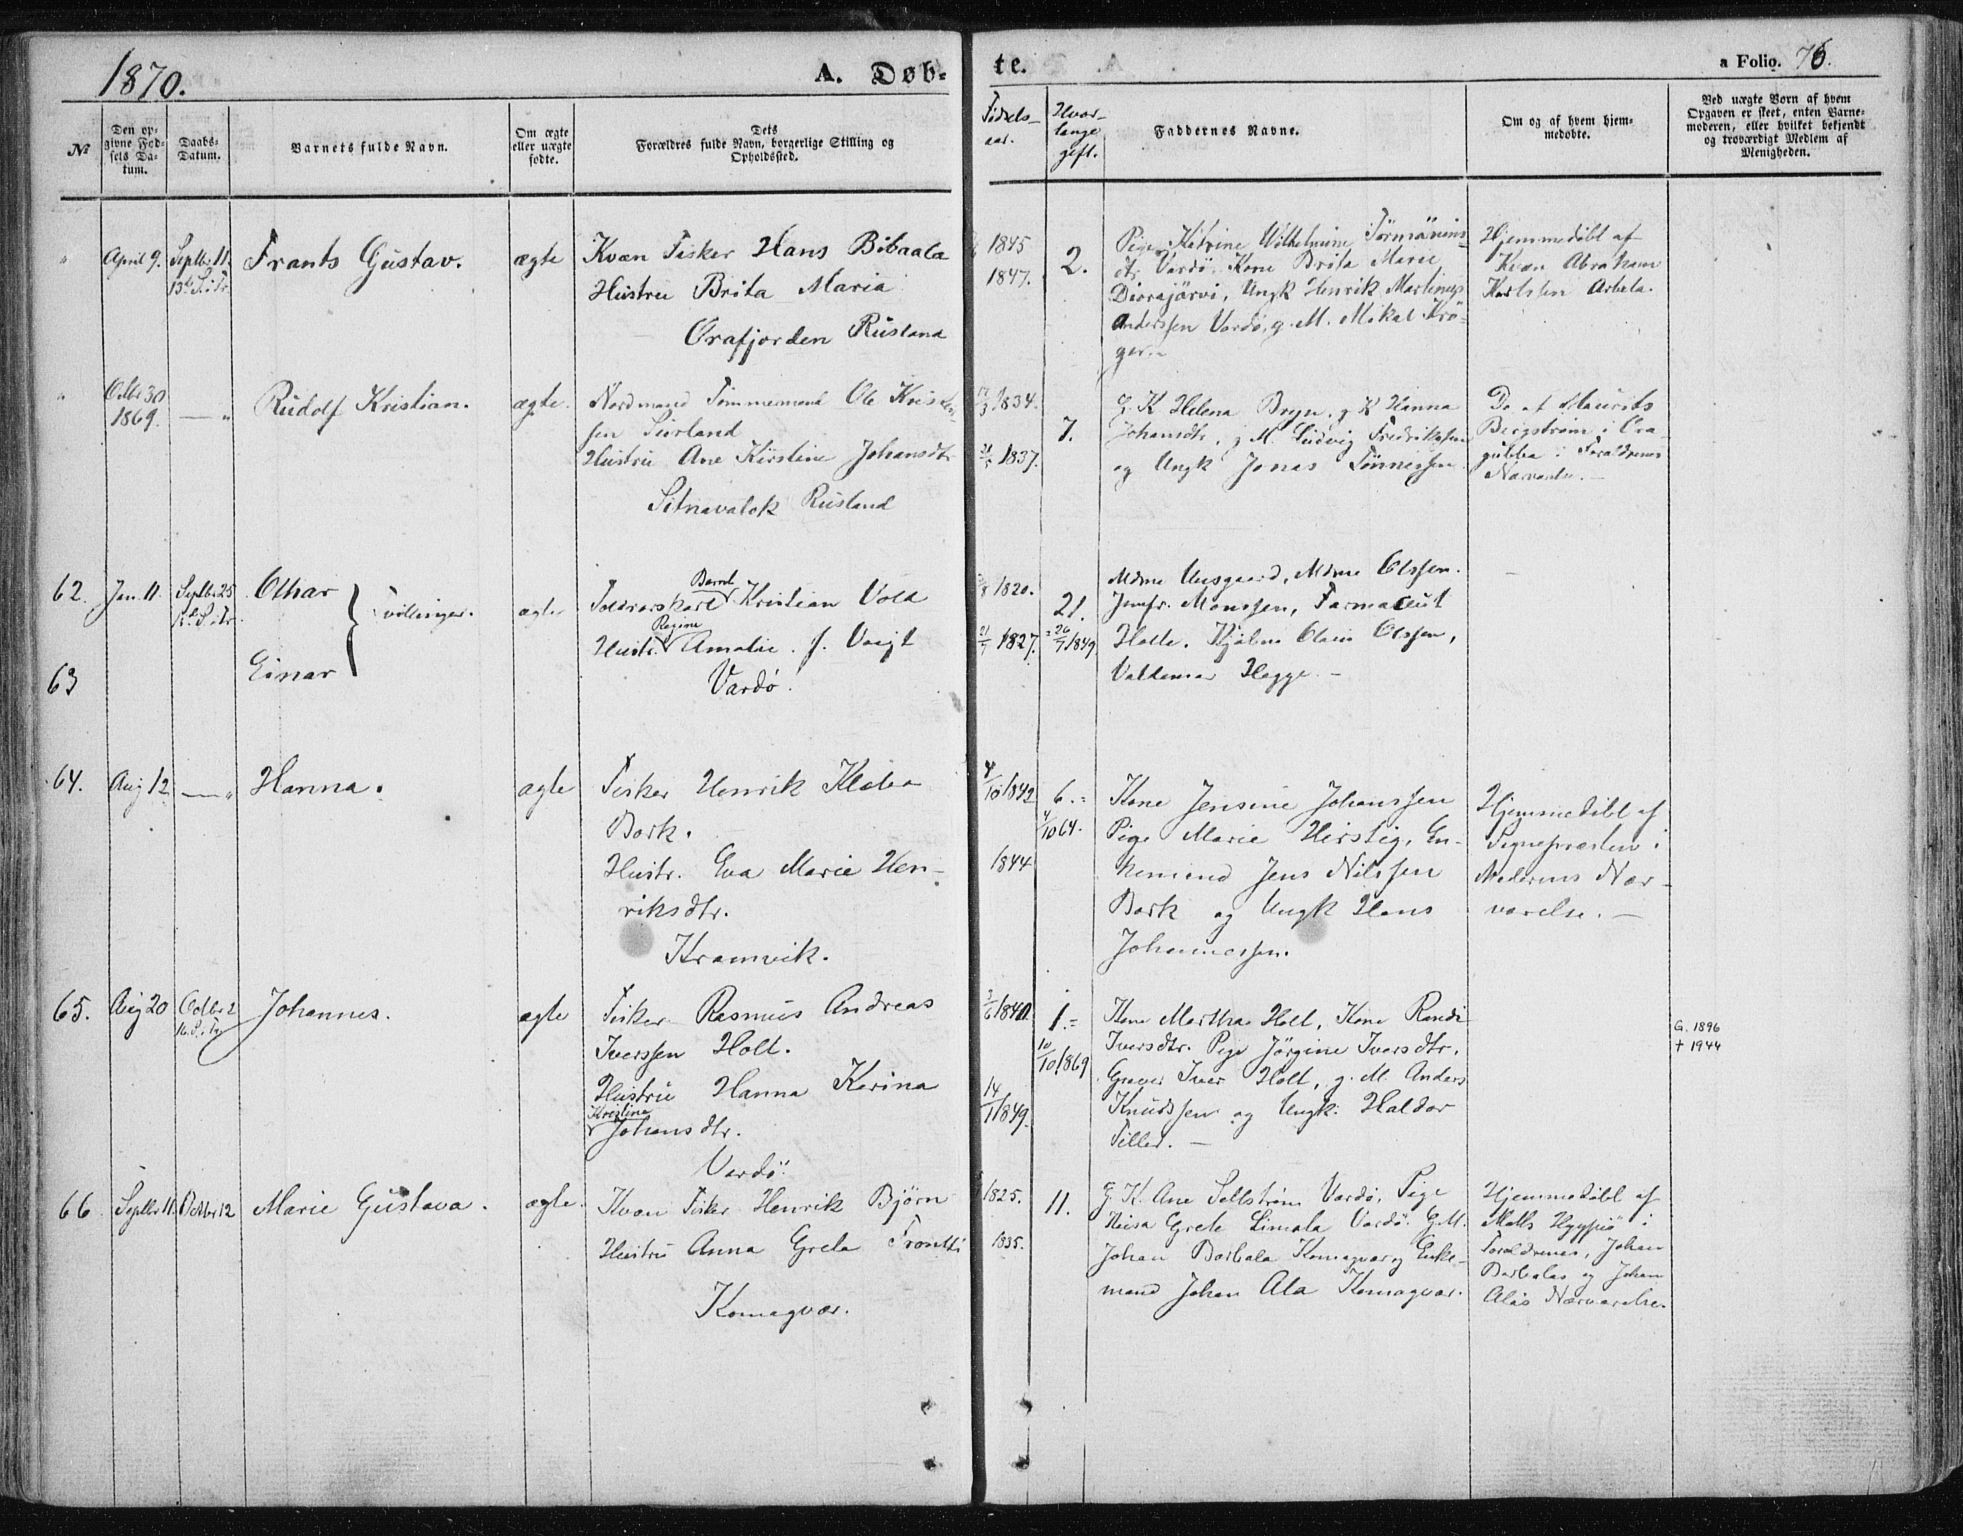 1870.
A. Døb-
te.
a Folio. 76.
No
Den op-
givne Fød-
sels Da-
tum.
Daabs-
Datum.
Barnets fulde Navn.
Om ægte
eller uægte
fødte.
Dets
Forældres fulde Navn, borgerlige Stilling og
Opholdssted.
Fødsels-
aar.
Hvor-
længe
gift.
Faddernes Navne.
Om og af hvem hjem-
medøbte.
Ved uægte Børn af hvem
Opgaven er skeet, enten Barne-
moderen, eller hvilket bekjendt
og troværdigt Medlem af
Menigheden.
"
April 9.
Septbr 11.
13de S. i Tr.
Frants Gustav.
ægte
Kvæn Fisker Hans Bibaala
Hustru Brita Maria
Orafjorden Rusland
1845
1847.
2.
Pige Katrine Wilhelmine
dtr Vardö. Kone Brita Marie
Ungk Henrik Martinus
Anderssen Vardö, g. M. Mikal Krö-
ger.
Hjemmedöbt af
Kvæn Abraham
Karlssen Arbela.
"
Octbr 30
1869.
— "
Rudolf Kristian.
ægte.
Nordmand Tömmermand Ole Kristen-
sen Surland
Hustru Ane Kirstine Johansdtr
Rusland
1834.
1837.
7.
G. K Helena Bryn, g K Hanna
Johansdtr, g M. Ludvig Fredrikssen
og Ungk Jonas Tönnessen
Do af Maurits
Bergström i
Forældrenes
Nærværelse. —
62.
Jan. 11.
Septbr 25
Othar
63
Einar
Tvillinger.
ægte
Berent
Toldroerskarl Kristian Vold
Regine
Hustr. Amalie f. Voigt
Vardö.
1820.
1827.
21.
26/7 1849
Mdme Olssen.
Jomfr. Monssen, Farmaceut
Holte. Hjalm Olssen,
Valdemar Hegge. —
64.
Aug 12
— "
Hanna.
ægte
Fisker Henrik
Bark.
Hustr. Eva Marie Hen-
riksdtr.
Kramvik.
4/10 1842
1844
6.
4/10 64.
Kone Jensine Johanssen
Pige Marie Hirstig, En-
kemand Jens Nilssen
Bark og Ungk Hans
Johannessen.
Hjemmedöbt af
Sognepresten i
Moderens Nær-
værelse. —
65.
Aug 20
Octbr 2
16. S. i Tr
Johannes.
ægte
Fisker Rasmus Andreas
Iverssen Holt.
Hustru Hanna Karina
Kristine
Johansdtr.
Vardö.
1840.
14/1 1849.
1.
10/10 1869
Kone Martha Holt, Kone Randi
Iversdtr. Pige Jörgine Iversdtr.
Graver Iver Holt, g. M. Anders
Knudssen og Ungk. Haldor
Tiller. —
G. 1896
† 1944
66.
Septbr 11.
Octbr 12
Marie Gustava.
ægte.
Kvæn Fisker Henrik Björn
Hustru Anna Greta
Komagvær.
1825.
1835.
11.
G. K. Ane Sellström Vardö. Pige
Grete Limala Vardö. G. M.
Johan Barbala Komagvær og Enke-
mand Johan Ala Komagvær.
Hjemmedöbt af
Matts i
Forældrenes, Johan
Barbalas og Johan
Alas Nærværelse.